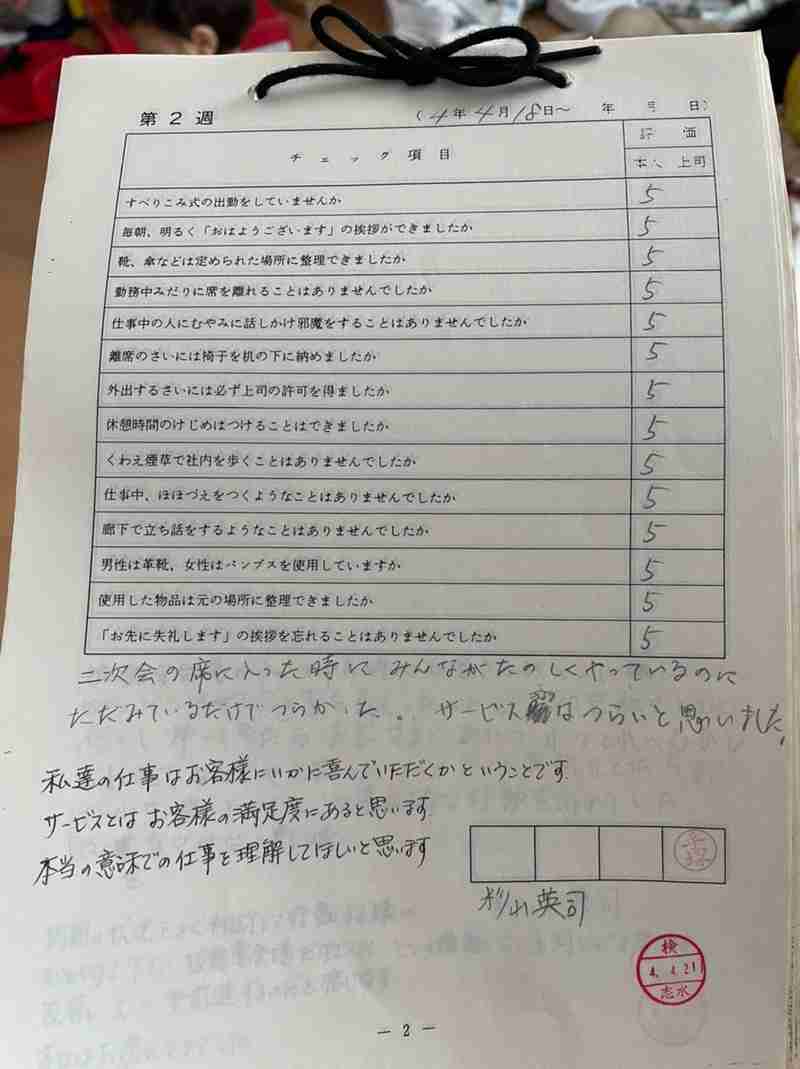 第2週
(4年4月18日〜 年 月 日)
チェック項目
評価
本人 上司
すべりこみ式の出勤をしていませんか 5
毎朝、明るく「おはようございます」の挨拶ができましたか 5
靴、傘などは定められた場所に整理できましたか 5
勤務中みだりに席を離れることはありませんでしたか 5
仕事中の人にむやみに話しかけ邪魔をすることはありませんでしたか 5
離席のさいには椅子を机の下に納めましたか 5
外出するさいには必ず上司の許可を得ましたか 5
休憩時間のけじめはつけることはできましたか 5
くわえ煙草で社内を歩くことはありませんでしたか 5
仕事中、ほほづえをつくようなことはありませんでしたか 5
廊下で立ち話をするようなことはありませんでしたか 5
男性は革靴、女性はパンプスを使用していますか 5
使用した物品は元の場所に整理できましたか 5
「お先に失礼します」の挨拶を忘れることはありませんでしたか 5
二次会の席に入った時に みんながたのしくやっているのに
ただみているだけでつらかった。サービス はつらいと思いました。
私達の仕事はお客様にいかに喜んでいただくかということです
サービスとはお客様の満足度にあると思います
本当の意味での仕事を理解してほしいと思います
杉山英司
検
4.4.21
志水
— 2 —